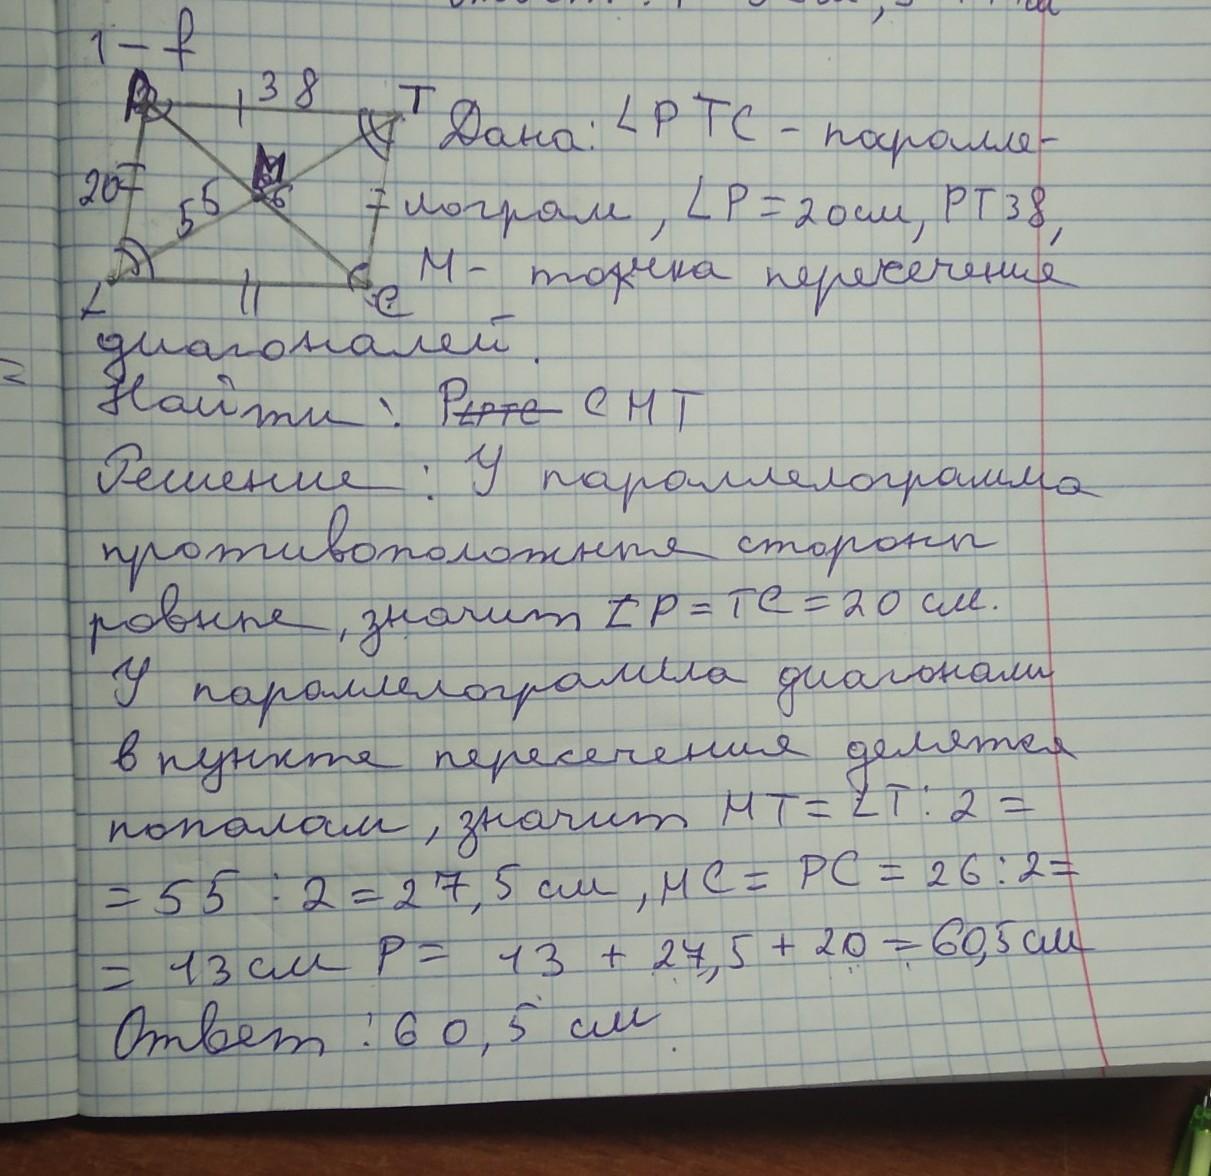 1 – f
38
T
20
55
M
26
L
C
Дана: LPTC – паралле-
лограм, LP = 20 см, PT 38,
M – точка пересечения
диагоналей.
Найти: P CMT
Решение: У параллелограмма
противоположные стороны
ровные, значит LP = TC = 20 см.
У параллелограмма диагонали
в пункте пересечения делятся
пополам, значит MT = LT : 2 =
= 55 : 2 = 27,5 см, MC = PC = 26 : 2 =
= 13 см P = 13 + 27,5 + 20 = 60,5 см
Ответ: 60,5 см.